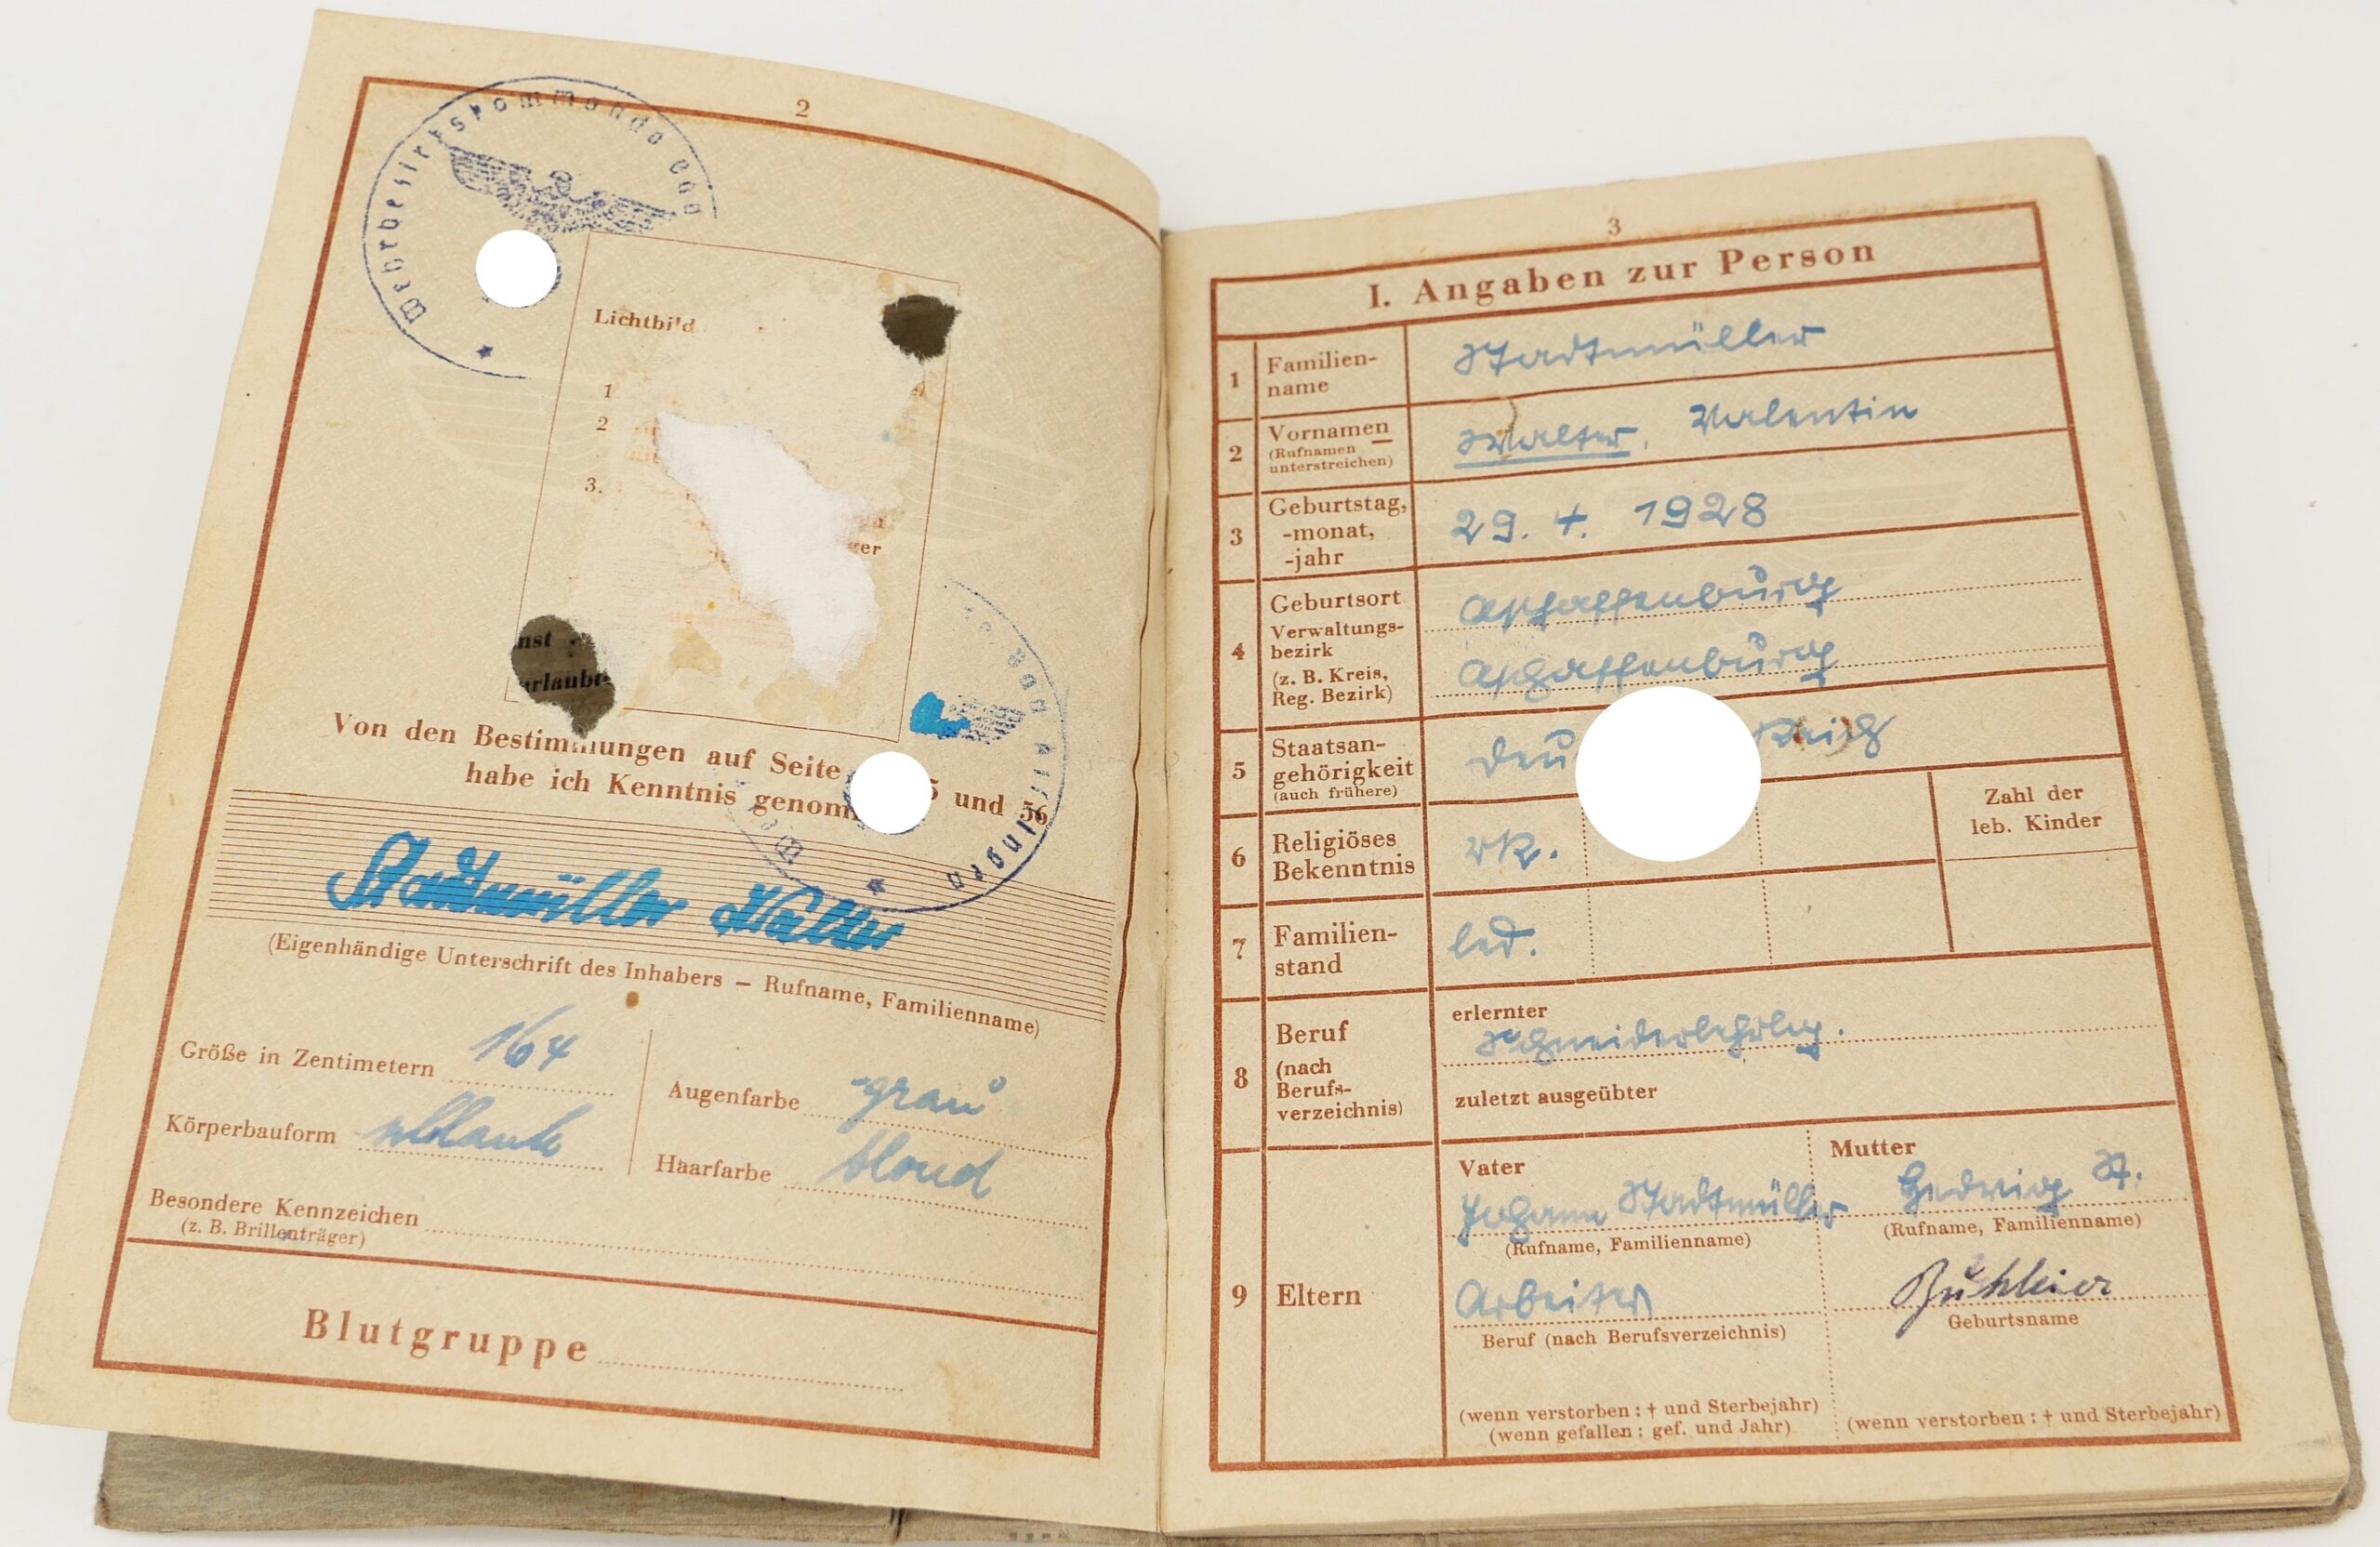 2
Wehrbezirkskommando
Lichtbild
1
2
3.
Von den Bestimmungen auf Seite 5 und 56
habe ich Kenntnis genom
Stadtmüller Walter
(Eigenhändige Unterschrift des Inhabers – Rufname, Familienname)
Größe in Zentimetern 164
Augenfarbe grau
Körperbauform schlank
Haarfarbe blond
Besondere Kennzeichen
(z. B. Brillenträger)
Blutgruppe
3
I. Angaben zur Person
1 Familien-
name
Stadtmüller
2 Vornamen
(Rufnamen
unterstreichen)
Walter, Valentin
3 Geburtstag,
-monat,
-jahr
29. 4. 1928
4 Geburtsort
Aschaffenburg
Verwaltungs-
bezirk
(z. B. Kreis,
Reg. Bezirk)
Aschaffenburg
5 Staatsan-
gehörigkeit
(auch frühere)
Deu Reich
6 Religiöses
Bekenntnis
rk.
Zahl der
leb. Kinder
7 Familien-
stand
led.
8 Beruf
(nach
Berufs-
verzeichnis)
erlernter
Schneiderlehrlg.
zuletzt ausgeübter
9 Eltern
Vater
Johann Stadtmüller
(Rufname, Familienname)
Arbeiter
Beruf (nach Berufsverzeichnis)
(wenn verstorben: † und Sterbejahr)
(wenn gefallen: gef. und Jahr)
Mutter
Hedwig St.
(Rufname, Familienname)
Geburtsname
(wenn verstorben: † und Sterbejahr)